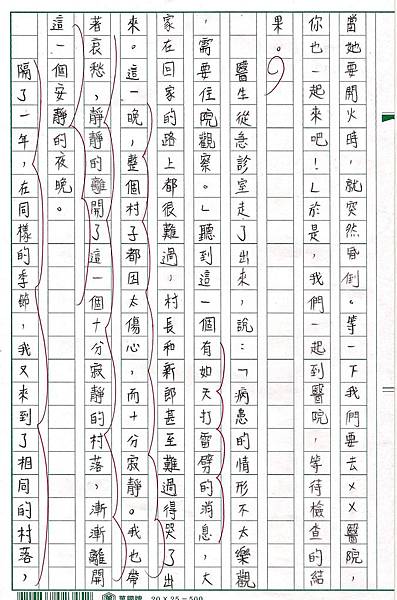 當她要開火時，就突然昏倒。等一下我們要去××醫院，
你也一起來吧！」於是，我們一起到醫院，等待檢查的結
果。
醫生從急診室走了出來，說：「病患的情形不太樂觀
，需要住院觀察。」聽到這一個有如天打雷劈的消息，大
家在回家的路上都很難過，村長和新郎甚至難過得哭了出
來。這一晚，整個村子都因太傷心，而十分寂靜。我也帶
著哀愁，靜靜的離開了這一個十分寂靜的村落，漸漸離開
這一個安靜的夜晚。
隔了一年，在同樣的季節，我又來到了相同的村落，
20×25=500